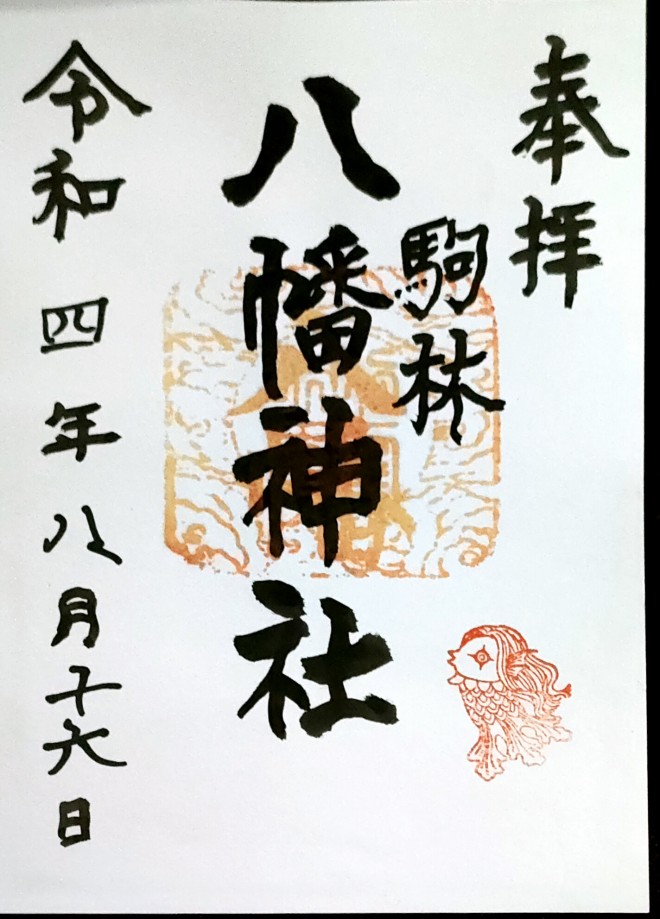 奉拝
駒林
八幡神社
令和四年八月十六日